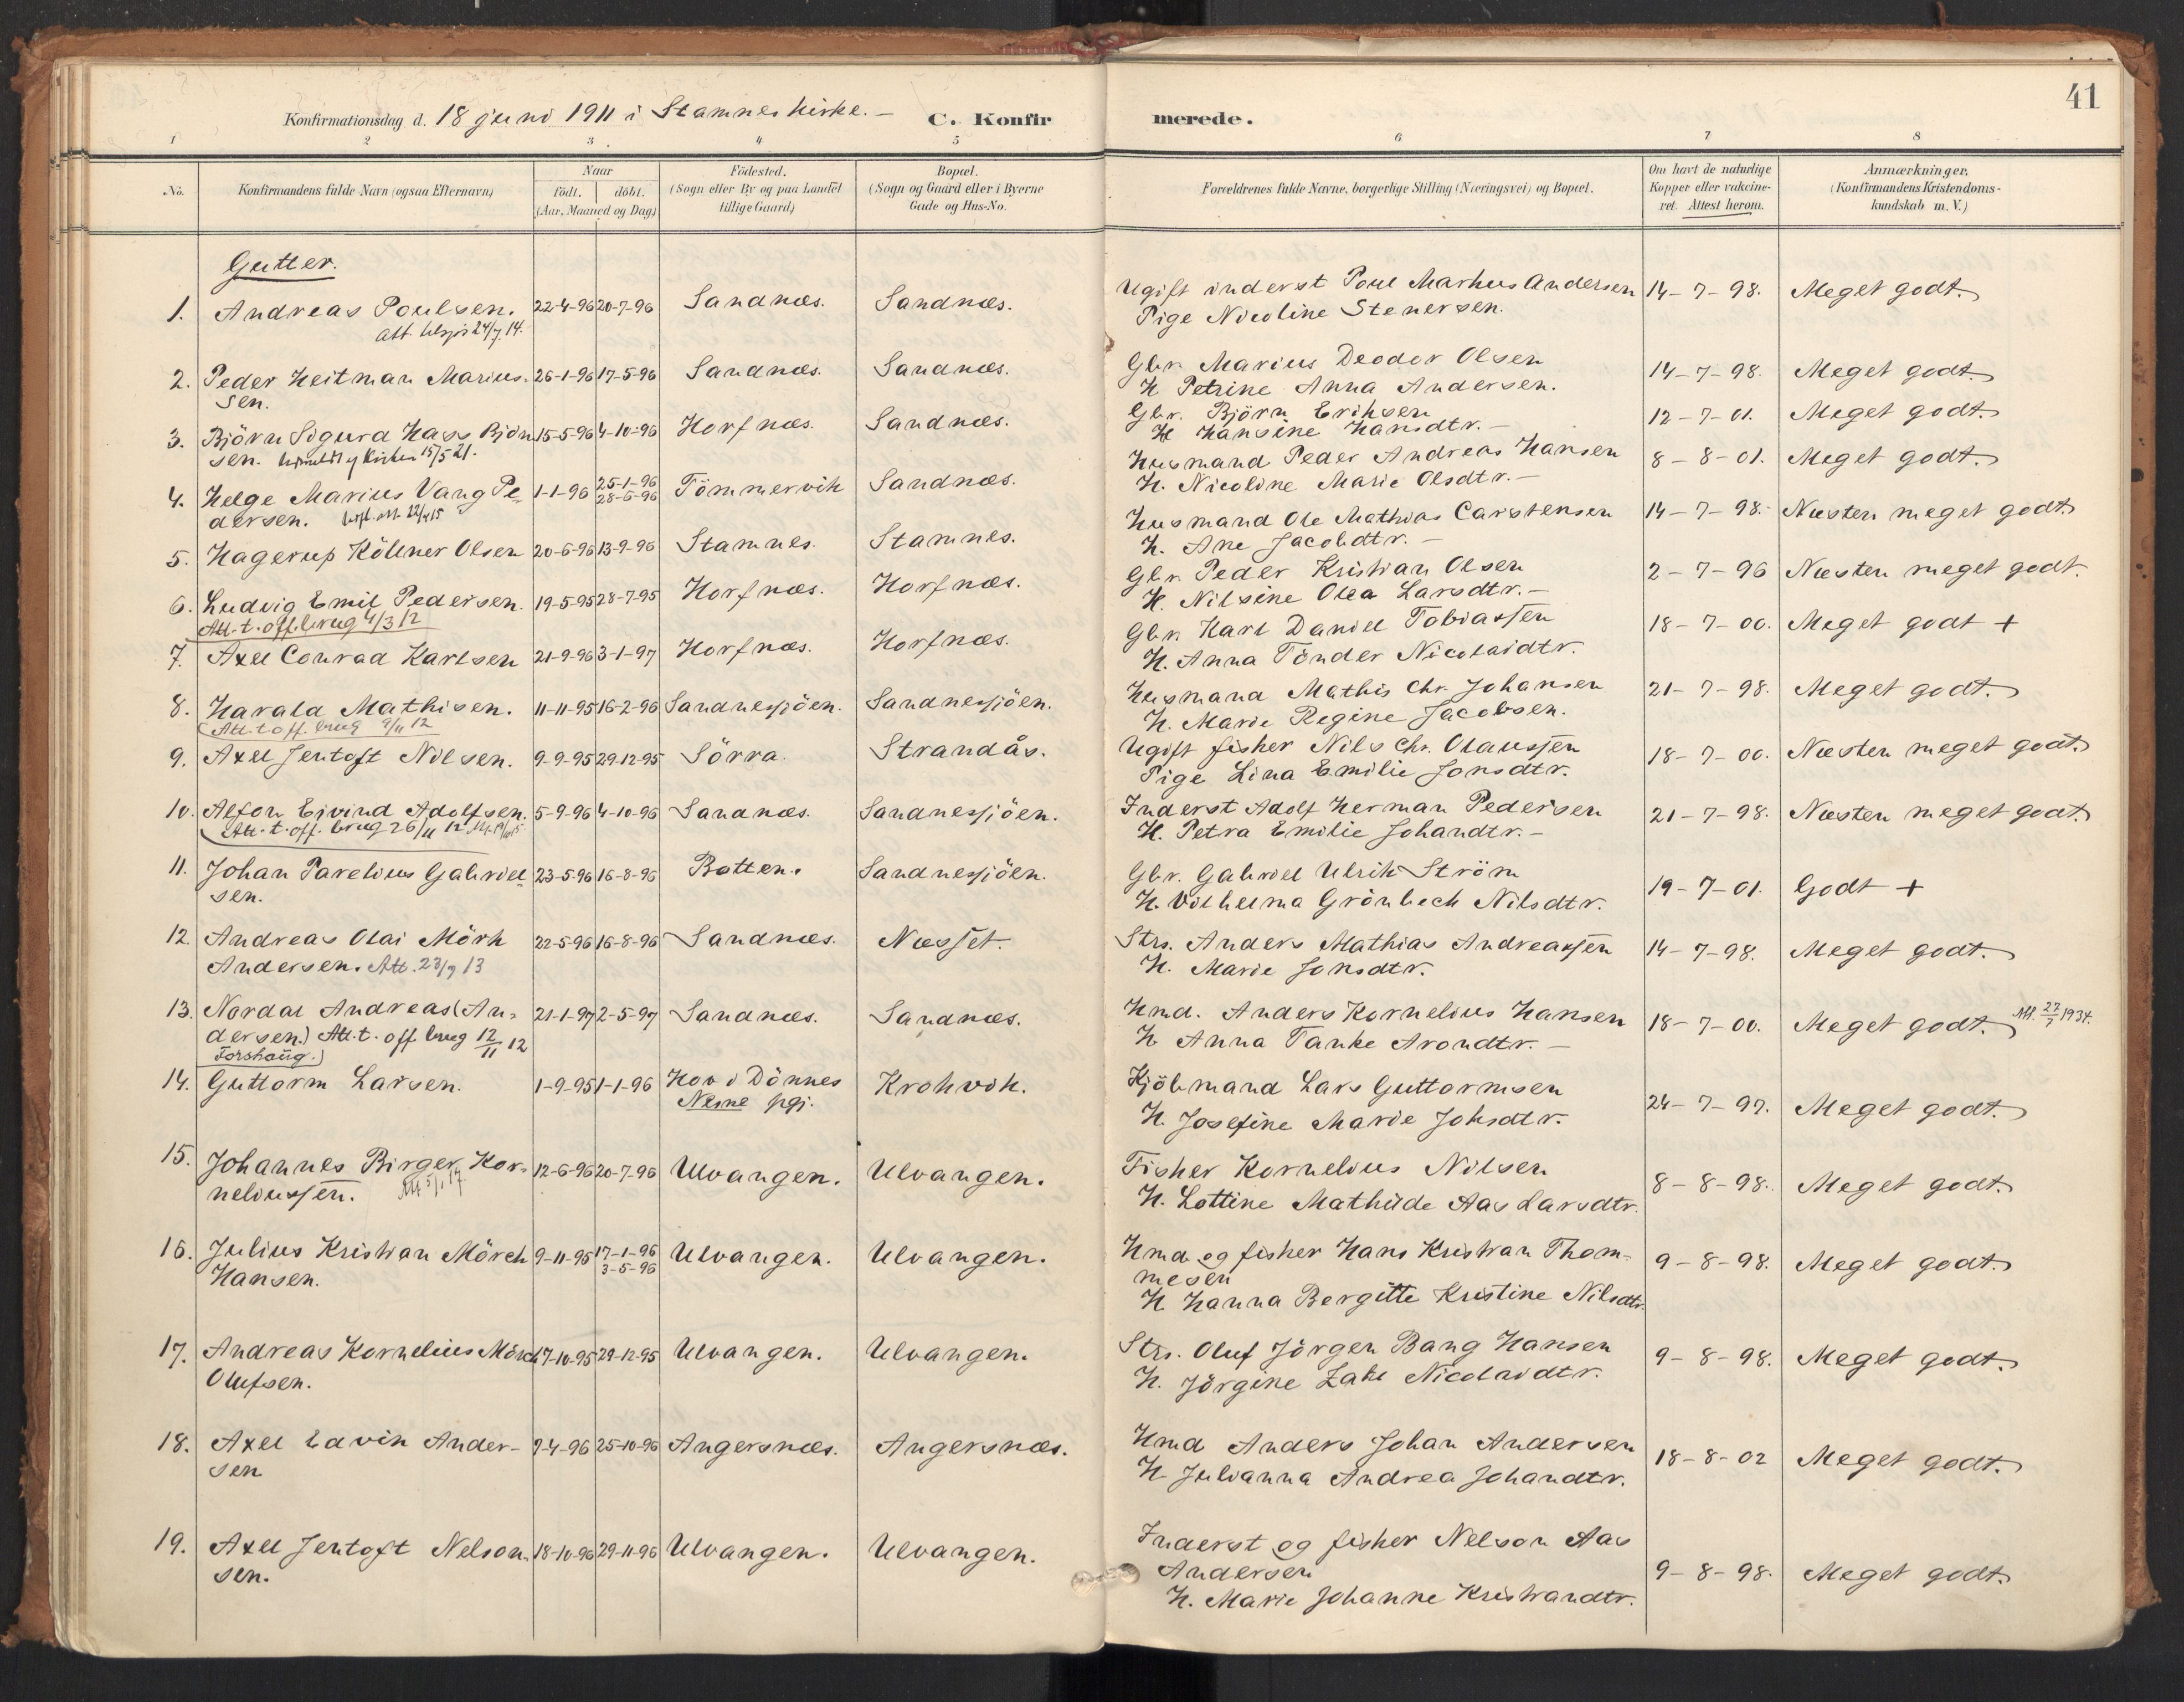 41
Konfirmationsdag d. 18 juni 1911 i Stamnes kirke.-
C. Konfirmerede.
1 2 3 4 5 6 7 8
No.
Konfirmandens fulde Navn (ogsaa Efternavn)
Naar
født. døbt.
(Aar, Maaned og Dag)
Födested.
(Sogn eller By og paa Landet
tillige Gaard)
Bopæl.
(Sogn og Gaard eller i Byerne
Gade og Hus-No.
Forældrenes fulde Navne, borgerlige Stilling (Næringsvei) og Bopæl.
Om havt de naturlige
Kopper eller vakcine-
ret. Attest herom.
Anmærkninger,
(Konfirmandens Kristendoms-
kundskab m. V.)
Gutter.
1. Andreas Poulsen. 22-4-96 20-7-96 Sandnæs. Sandnæs. Ugift inderst Poul Markus Andersen 14-7-98. Meget godt.
att. 24/7 14. Pige Nicoline Stenersen.
2. Peder Heitman Marius- 26-1-96 17-5-96 Sandnæs. Sandnæs. Gbr. Marius Deodor Olsen 14-7-98. Meget godt.
sen. H. Petrine Anna Andersen.
3. Björn Sigurd Hass Björn 15-5-96 4-10-96 Horfnæs. Sandnæs. Gbr. Björn Eriksen 12-7-01. Meget godt.
sen. 15/5 21. H. Hansine Hansdtr.-
4. Helge Marius Vang Pe- 1-1-96 25-1-96 Tömmervik Sandnæs. Husmand Peder Andreas Hansen 8-8-01. Meget godt.
dersen. att. 22/4 15 28-6-96 H. Nicoline Marie Olsdtr.-
5. Hagerup Köllner Olsen 20-6-96 13-9-96 Stamnes. Stamnes. Husmand Ole Mathias Carstensen 14-7-98.- Næsten meget godt.
H. Ane Jacobdtr.-
6. Ludvig Emil Pedersen. 19-5-95 28-7-95 Horfnæs. Horfnæs. Gbr. Peder Kristian Olsen 2-7-96 Næsten meget godt.
Att. t. off. brug 4/3 12 H. Nilsine Olea Larsdtr.-
7. Axel Conrad Karlsen 21-9-96 3-1-97 Horfnæs. Horfnæs. Gbr. Karl Daniel Tobiassen 18-7-00. Meget godt +
H. Anna Tönder Nicolaidtr.
8. Harald Mathisen. 11-11-95 16-2-96 Sandnessjöen. Sandnessjöen. Husmand Mathis Chr. Johansen 21-7-98. Meget godt.
Att. t. off. brug 9/11 12 H. Marie Regine Jacobsen.
9. Axel Jentoft Nilsen. 9-9-95 29-12-95 Sörra. Strandås. Ugift fisker Nils Chr. Olaussen 18-7-00. Næsten meget godt.
Pige Lina Emilie Jonsdtr.
10. Alfon Eivind Adolfsen. 5-9-96 4-10-96 Sandnæs. Sandnessjöen. Inderst Adolf Herman Pedersen 21-7-98. Næsten meget godt.
Att. t. off. brug 26/11 12 H. Petra Emilie Johandtr.-
11. Johan Parelius Gabriel- 23-5-96 16-8-96 Botten. Sandnessjöen. Gbr. Gabriel Ulrik Ström 19-7-01. Godt +
sen. H. Vilhelma Grönbech Nilsdtr.
12. Andreas Olai Mörk 22-5-96 16-8-96 Sandnæs. Næsset. Strs. Anders Mathias Andreassen 14-7-98. Meget godt.
Andersen. Att. 23/9 13 H. Marie Jonsdtr.
13. Nordal Andreas (An- 21-1-97 2-5-97 Sandnæs. Sandnæs. Hmd. Anders Kornelius Hansen 18-7-00. Meget godt. Att. 27/7 1934.
dersen.) Att. t. off. brug 12/11 12 H. Anna Tanke Arondtr.-
Forshaug.)
14. Guttorm Larsen. 1-9-95 1-1-96 Hov i Dönnes Krokvik. Kjöbmand Lars Guttormsen 24-7-97. Meget godt.
Nesne pgj. H. Josefine Marie Johsdtr.
15. Johannes Birger Kor- 12-6-96 20-7-96 Ulvangen. Ulvangen. Fisker Kornelius Nilsen 8-8-98. Meget godt.
neliussen. Att 5/1 17. H. Lottine Mathilde Aas Larsdtr.
16. Julius Kristian Mörch 9-11-95 17-1-96 Ulvangen. Ulvangen. Hmd og fisker Hans Kristian Thom- 9-8-98. Meget godt.
Hansen. 3-5-96 mesen
H. Hanna Bergitte Kristine Nilsdtr.
17. Andreas Kornelius Mörch 17-10-95 29-12-95 Ulvangen. Ulvangen. Strs. Oluf Jörgen Bang Hansen 9-8-98. Meget godt.
Olufsen. H. Jörgine Zahl Nicolaidtr.
18. Axel Edvin Ander- 9-4-96 25-10-96 Angersnæs. Angersnæs. Hmd Anders Johan Andersen 18-8-02 Meget godt.
sen H. Julianna Andrea Johandtr.
19. Axel Jentoft Nelson- 18-10-96 29-11-96 Ulvangen. Ulvangen. Inderst og fisker Nelson Aas 9-8-98. Meget godt.
sen. Andersen
H. Marie Johanne Kristiandtr.